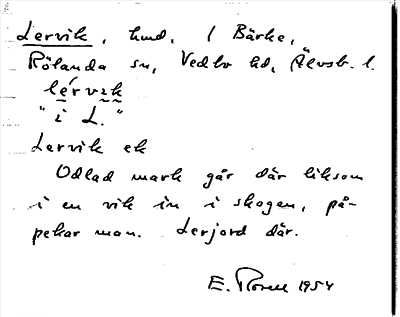 Lervik, hmd, / Bärke,
Rölanda sn, Vedbo hd, Älvsb. l.
lérvɩk
"i L."
Lervik ek
Odlad mark går där liksom
i en vik in i skogen, på-
pekar man. Lerjord där.
E. Rosell 1954